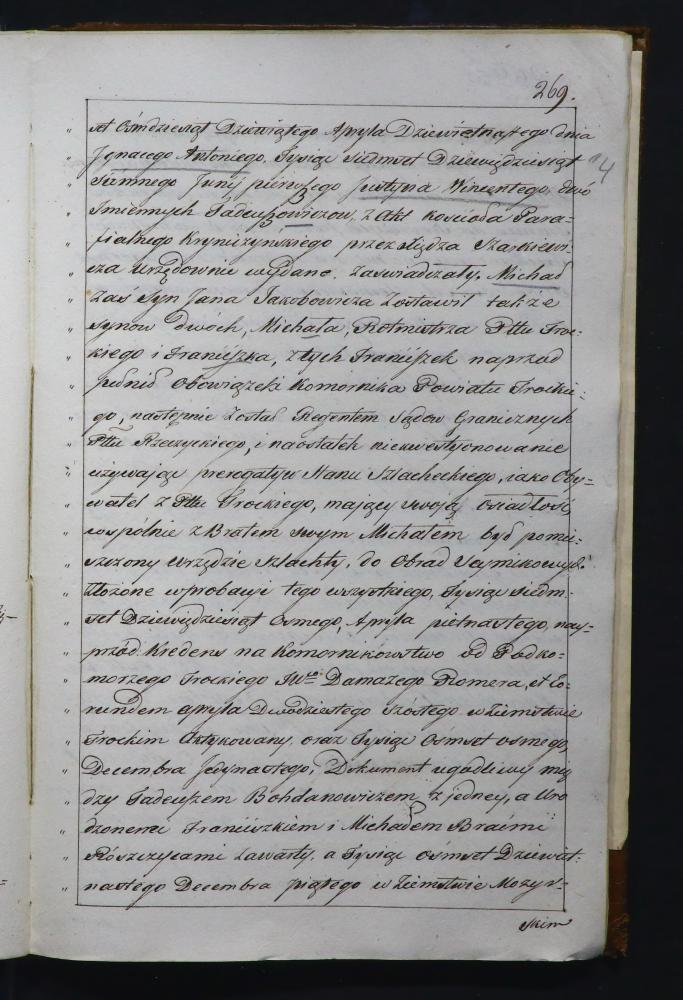 269.
set Ośmdziesiąt Dziewiątego Apryla Dziewiętnastego dnia
Jgnacego Antoniego, Tysiąc Siedmset Dziewiędziesiąt
Siumnego Junij pierwszego Justyna Wincentego, dwó
Jmiennych Tadeuszowiczow, z Akt Kościoła Para=
fialnego Kryniczyńskiego przez Xiędza Szarkiewi=
cza Urzędownie wydane. zaświadczały. Michał
Zaś Syn Jana Jakobowicza Zostawił także
synow dwóch, Michała, Rotmistrza Pttu Troc-
kiego i Franciszka, z tych Franciszek naprzod
pełnił obowiązek Komornika Powiatu Trockie=
go, następnie został Regentem Sądow Granicznych
Pttu Rzeczyckiego, i naostatek niekwestyonowanie
używając prerogatyw Stanu Szlacheckiego, iako Oby=
watel z Pttu Trockiego, mający swoją osiadłość
wspólnie z Bratem swym Michałem był pomie=
szczony w rzędzie Szlachty, do Obrad Seymikowych.
Złożone w probacyi tego wszystkiego, Tysiąc siedm=
set Dziewiędziesiąt Osmego, Apryla pietnastego, nay=
przód Kredens na Komornikowstwo od Podko=
morzego Trockiego JW<sup>go</sup> Damazego Romera, et Eo=
rundem apryla Dwudziestego Szóstego w Ziemstwie
Trockim Aktykowany, oraz Tysiąc Ośmset osmego,
Decembra Jedynastego, Dokument ugodliwy mię
dzy Tadeuszem Bohdanowiczem z jedney, a Uro
dzonemi Franciszkiem i Michałem Braćmi
Rószczycami zawarty, a Tysiąc ośmset Dziewięt=
nastego Decembra piątego w Ziemstwie Mozyr=
skim